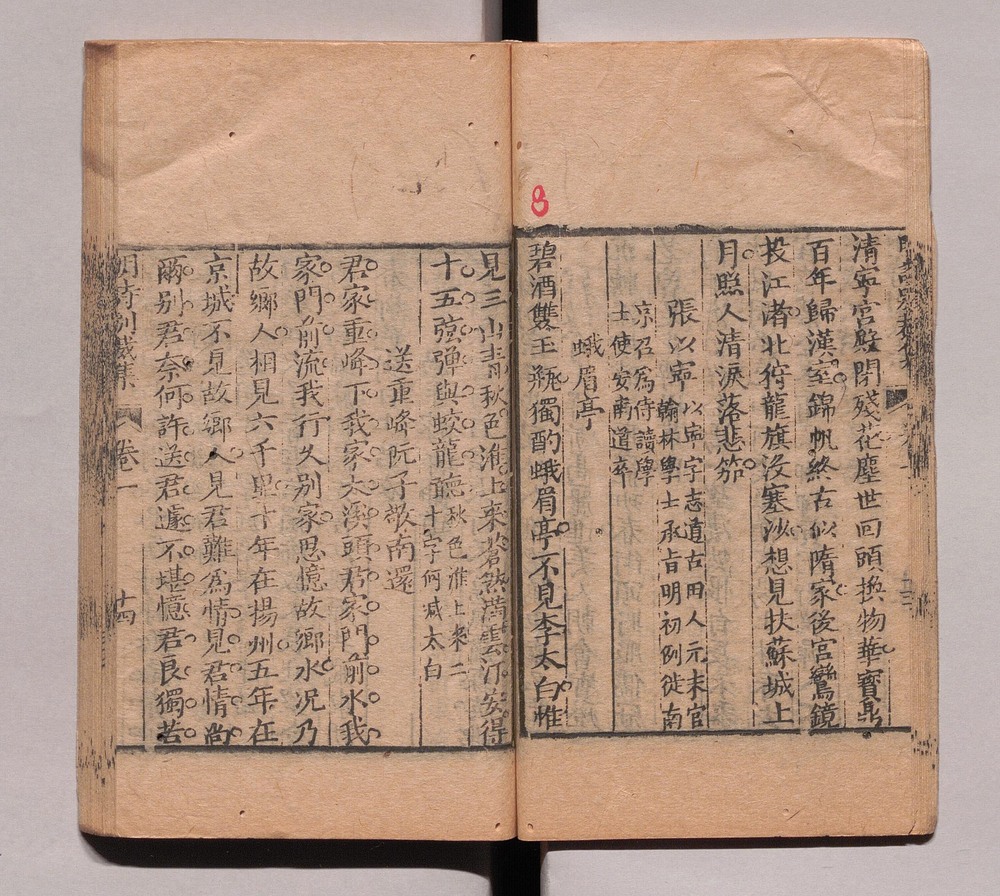 8
清寧宮殿閉殘花塵世回頭換物華寶鼎
百年歸漢室錦帆終古似隋家後宮鸞鏡
投江渚北狩龍旗沒塞沙想見扶蘇城上
月照人清淚落悲笳
張以寧
以寧字志道古田人元末官
翰林學士承旨明初例徙南
京召爲侍讀學
士使安南道卒
蛾眉亭
碧酒雙玉瓶獨酌蛾眉亭不見李太白惟
見三山青秋色淮上來蒼然滿雲汀安得
十五弦彈與蛟龍聽
秋色淮上來二
十字何減太白
送重峰阮子敬南還
君家重峰下我家大溪頭君家門前水我
家門前流我行久別家思憶故鄉水况乃
故鄉人相見六千里十年在揚州五年在
京城不見故鄉人見君難爲情見君情尚
爾別君奈何許送君遽不堪憶君良獨苦
明詩別裁集
卷一
十四